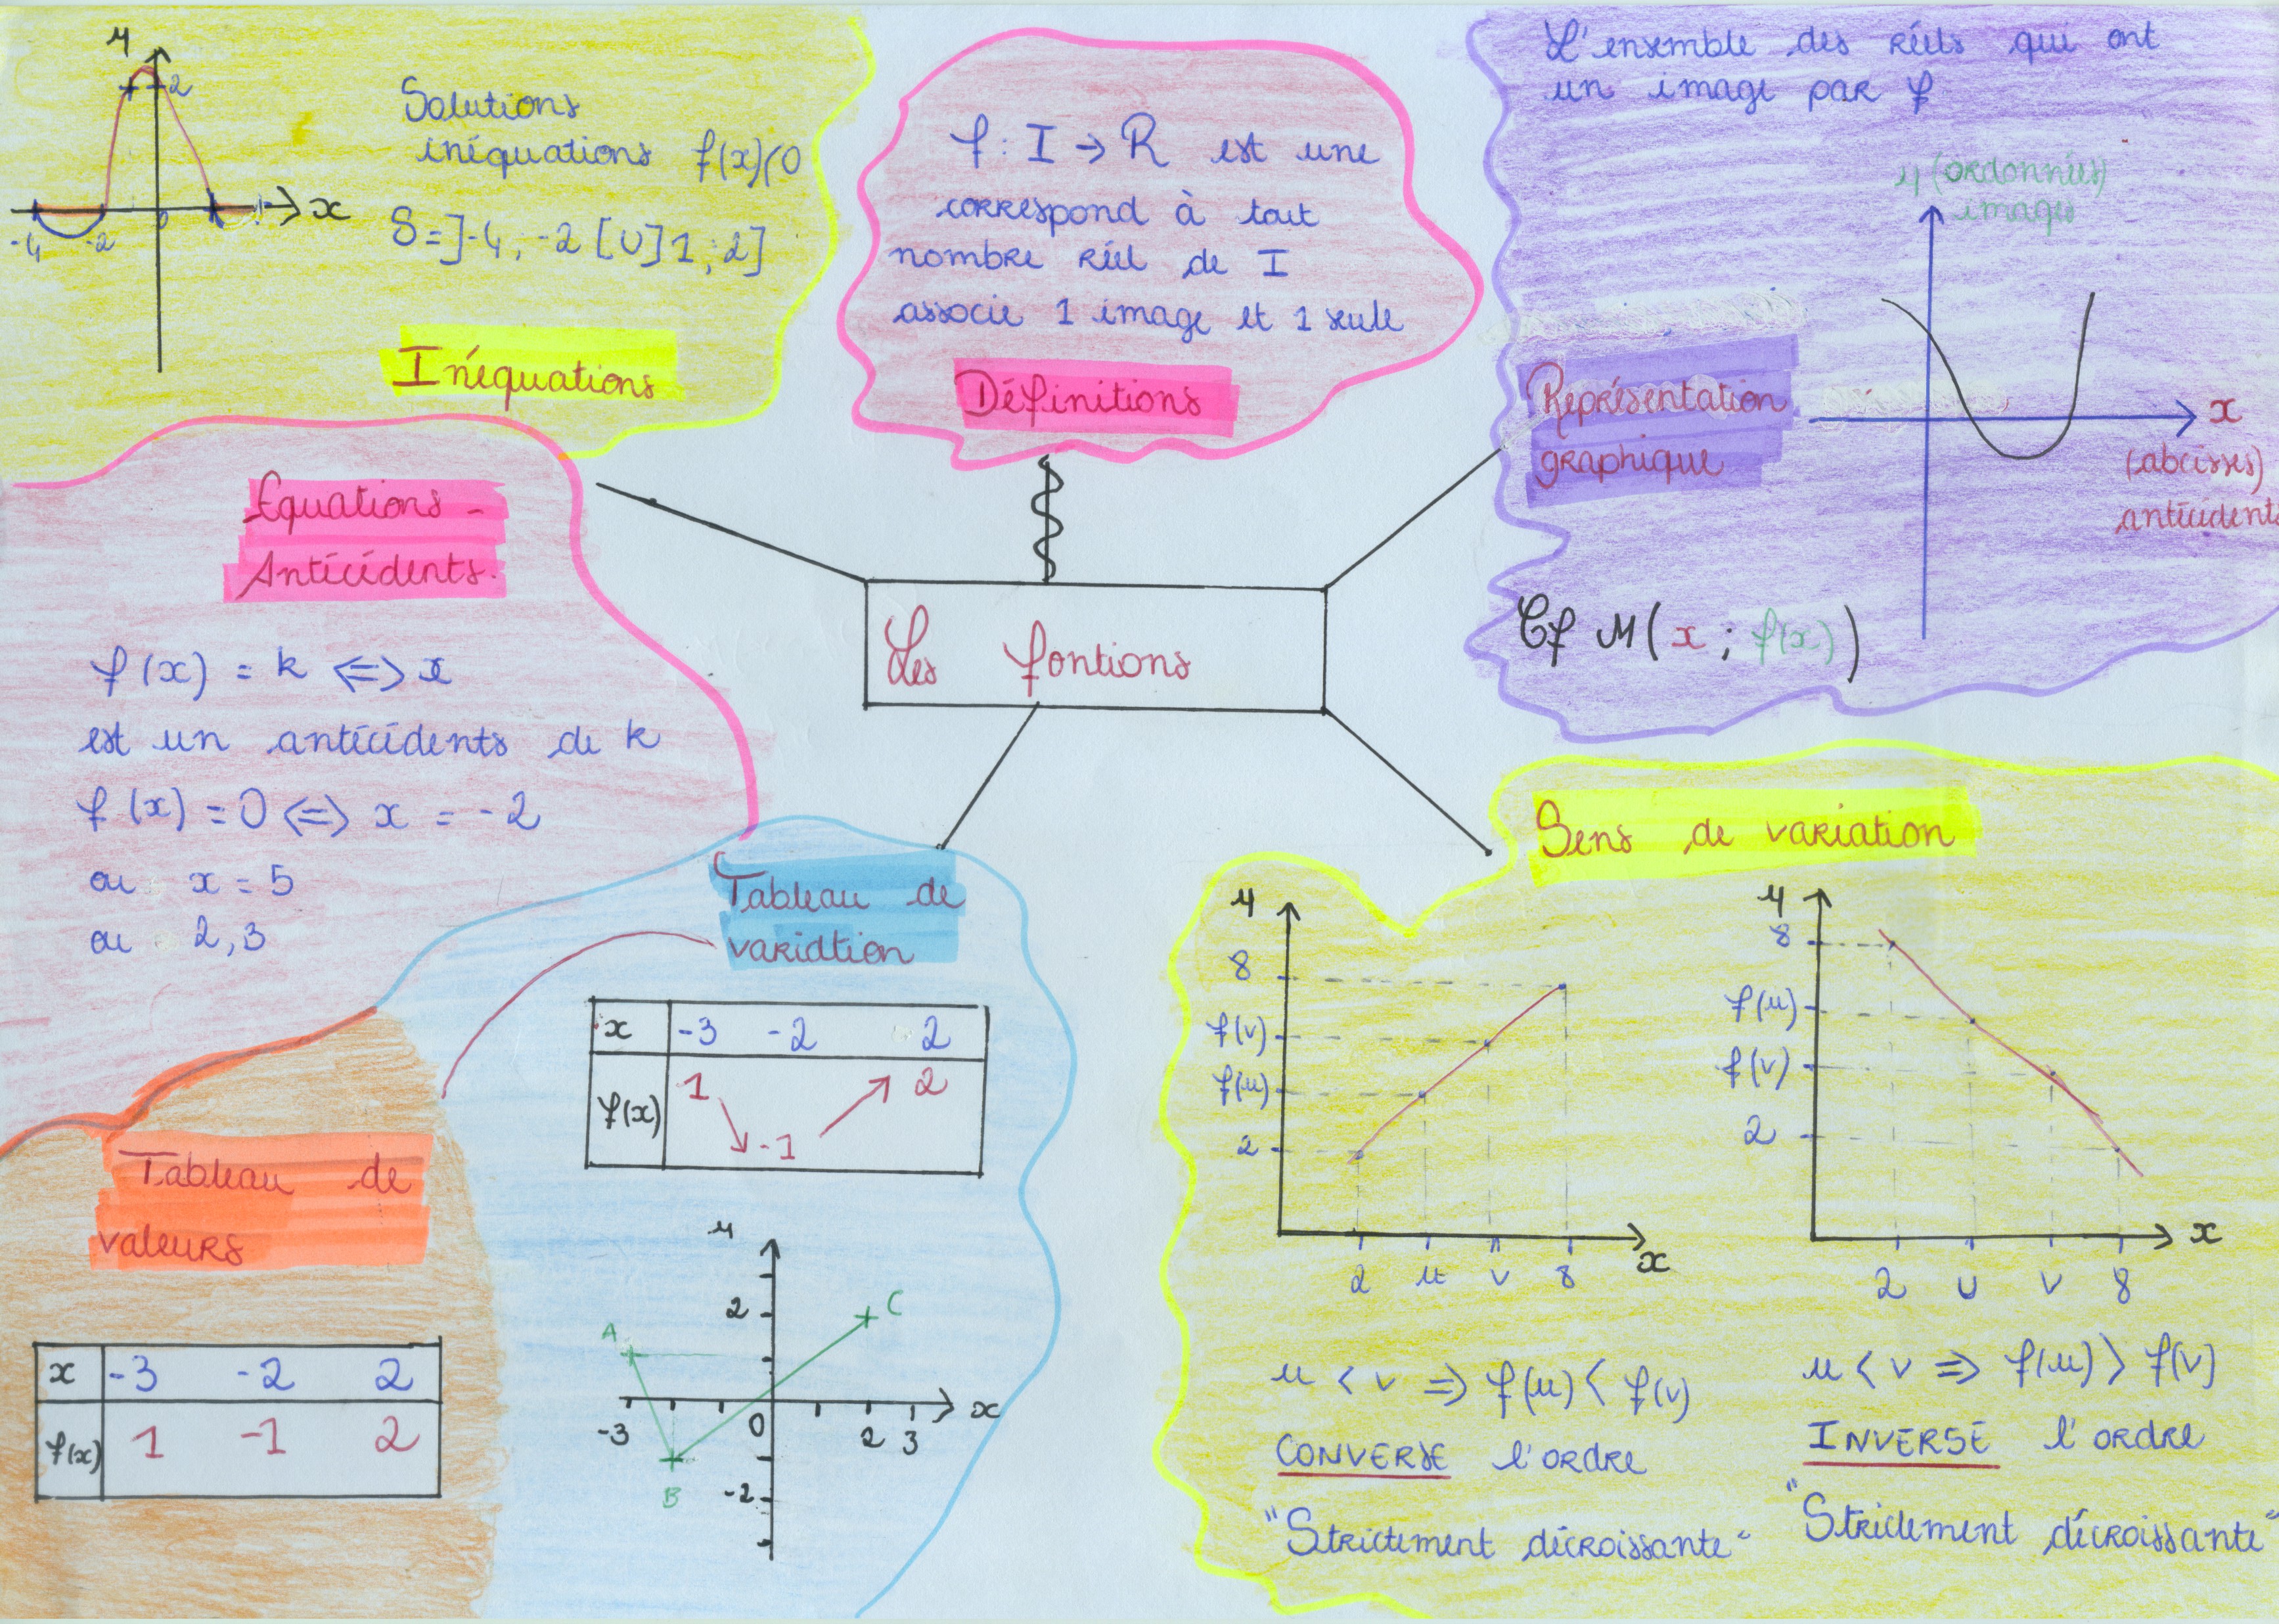 y
2
-4
-2
0
x
Solutions
inéquations f(x)<0
S=]-4, -2[U]1, 2]
Inéquations
f: I → R est une
correspond à tout
nombre réel de I
associe 1 image et 1 seule
Définitions
L'ensemble des réels qui ont
un image par f
y (ordonnées)
images
Représentation
graphique
x
(abcisses)
antécédents
Cf M(x ; f(x))
Equations -
Antécédents.
f(x) = k <=> x
est un antécédents de k
f(x) = 0 <=> x = -2
ou x = 5
ou 2,3
Les fontions
Tableau de
variation
x -3 -2 2
f(x) 1 -1 2
y
2
A
C
x
-3
0
2 3
B
-2
Tableau de
valeurs
x -3 -2 2
f(x) 1 -1 2
Sens de variation
y
8
f(v)
f(u)
2
2 u v 8
x
u < v => f(u) < f(v)
CONVERSE l'ordre
"Strictement décroissante"
y
8
f(u)
f(v)
2
2 u v 8
x
u < v => f(u) > f(v)
INVERSE l'ordre
"Strictement décroissante"